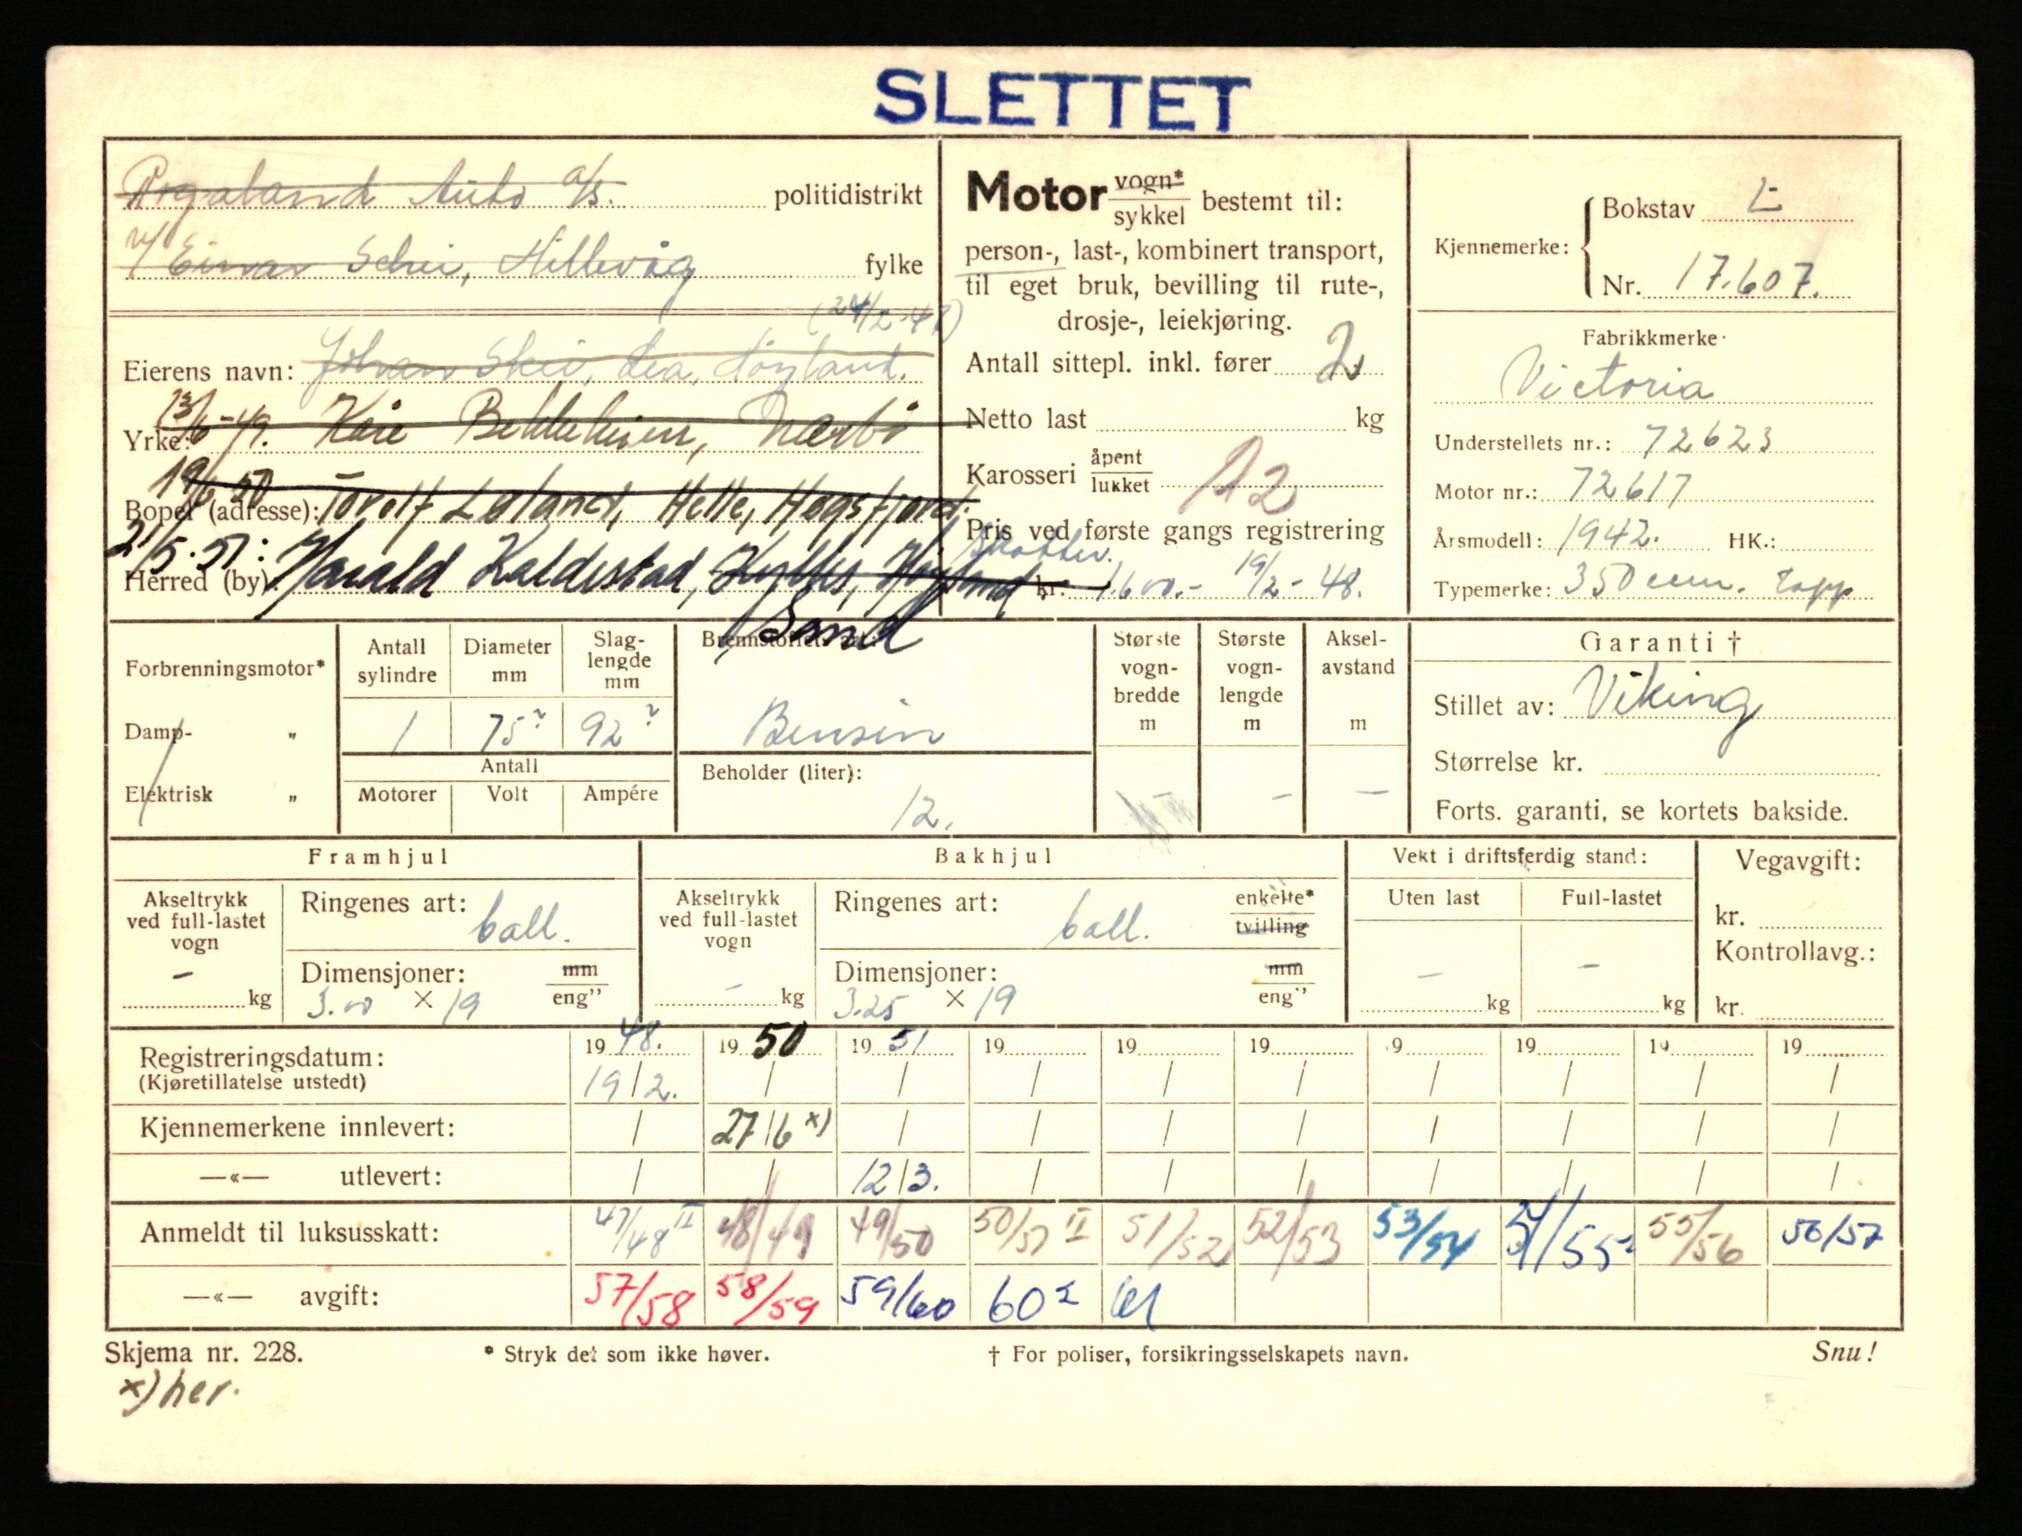 SLETTET
Rogaland Auto a/s. politidistrikt
v/ Einar Schei, Hillevåg fylke
(24/2-48)
Eierens navn: Johan Skei, Lea, Höyland.
13/6-49. Kåre Bekkeheien, Nærbö
Yrke:
19/6 50 Torolf Løland, Helle, Høgsfjord.
Bopel (adresse):
21/5.51: Harald Kaldestad, Høyland
Herred (by)
Sand
Motor vogn* sykkel bestemt til:
person-, last-, kombinert transport,
til eget bruk, bevilling til rute-,
drosje-, leiekjøring.
Antall sittepl. inkl. fører 2
Netto last kg
Karosseri åpent lukket A2
Pris ved første gangs registrering
kr. 1.600.- 19/2-48.
Kjennemerke: Bokstav L
Nr. 17.607.
Fabrikkmerke
Victoria
Understellets nr.: 72623
Motor nr.: 72617
Årsmodell: 1942. HK.:
Typemerke: 350 ccm. Topp
Forbrenningsmotor*
Damp- "
Elektrisk "
Antall sylindre
Diameter mm
Slaglengde mm
1 75² 92²
Antall
Motorer Volt Ampére
Brennstoffets art:
Bensin
Beholder (liter):
12.
Største vogn-bredde m
Største vogn-lengde m
Aksel-avstand m
— —
Garanti †
Stillet av: Viking
Størrelse kr.
Forts. garanti, se kortets bakside.
Framhjul
Akseltrykk ved full-lastet vogn
— kg
Ringenes art: ball.
Dimensjoner: mm eng"
3.00 × 19
Bakhjul
Akseltrykk ved full-lastet vogn
— kg
Ringenes art: ball. enkelte* tvilling
Dimensjoner: mm eng"
3.25 × 19
Vekt i driftsferdig stand:
Uten last Full-lastet
— kg — kg
Vegavgift:
kr.
Kontrollavg.:
kr.
Registreringsdatum: 1948. 1950 1951 19 19 19 19 19 19 19
(Kjøretillatelse utstedt) 19/2. / / / / / / / / /
Kjennemerkene innlevert: / 27/6 x) / / / / / / / /
—«— utlevert: / / 12/3. / / / / / / /
Anmeldt til luksusskatt: 47/48 II 48/49 49/50 50/51 II 51/52 52/53 53/54 54/55 55/56 56/57
—«— avgift: 57/58 58/59 59/60 60² 61
Skjema nr. 228. * Stryk det som ikke høver. † For poliser, forsikringsselskapets navn. Snu!
x) her.